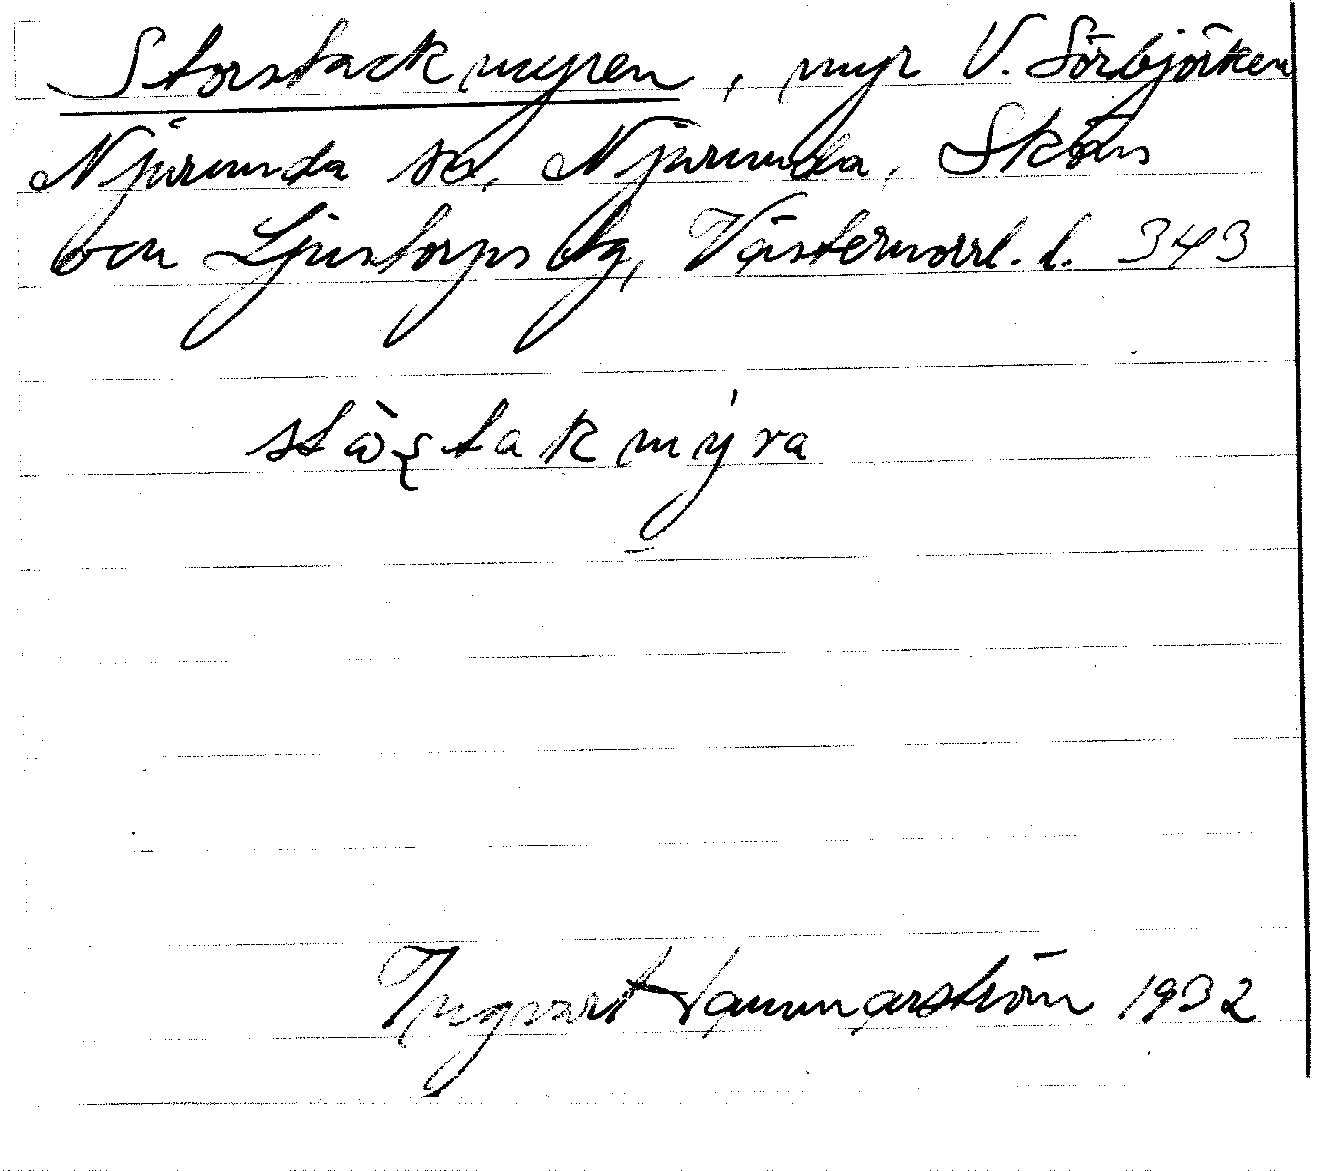 Storstackmyren, myr V. Sörbjörken
Njurunda sn, Njurunda, Sköns
och Ljustorps tg, Västernorrl. l. 343
stò̤ʂtakmýra
Ingvart Hammarström 1932